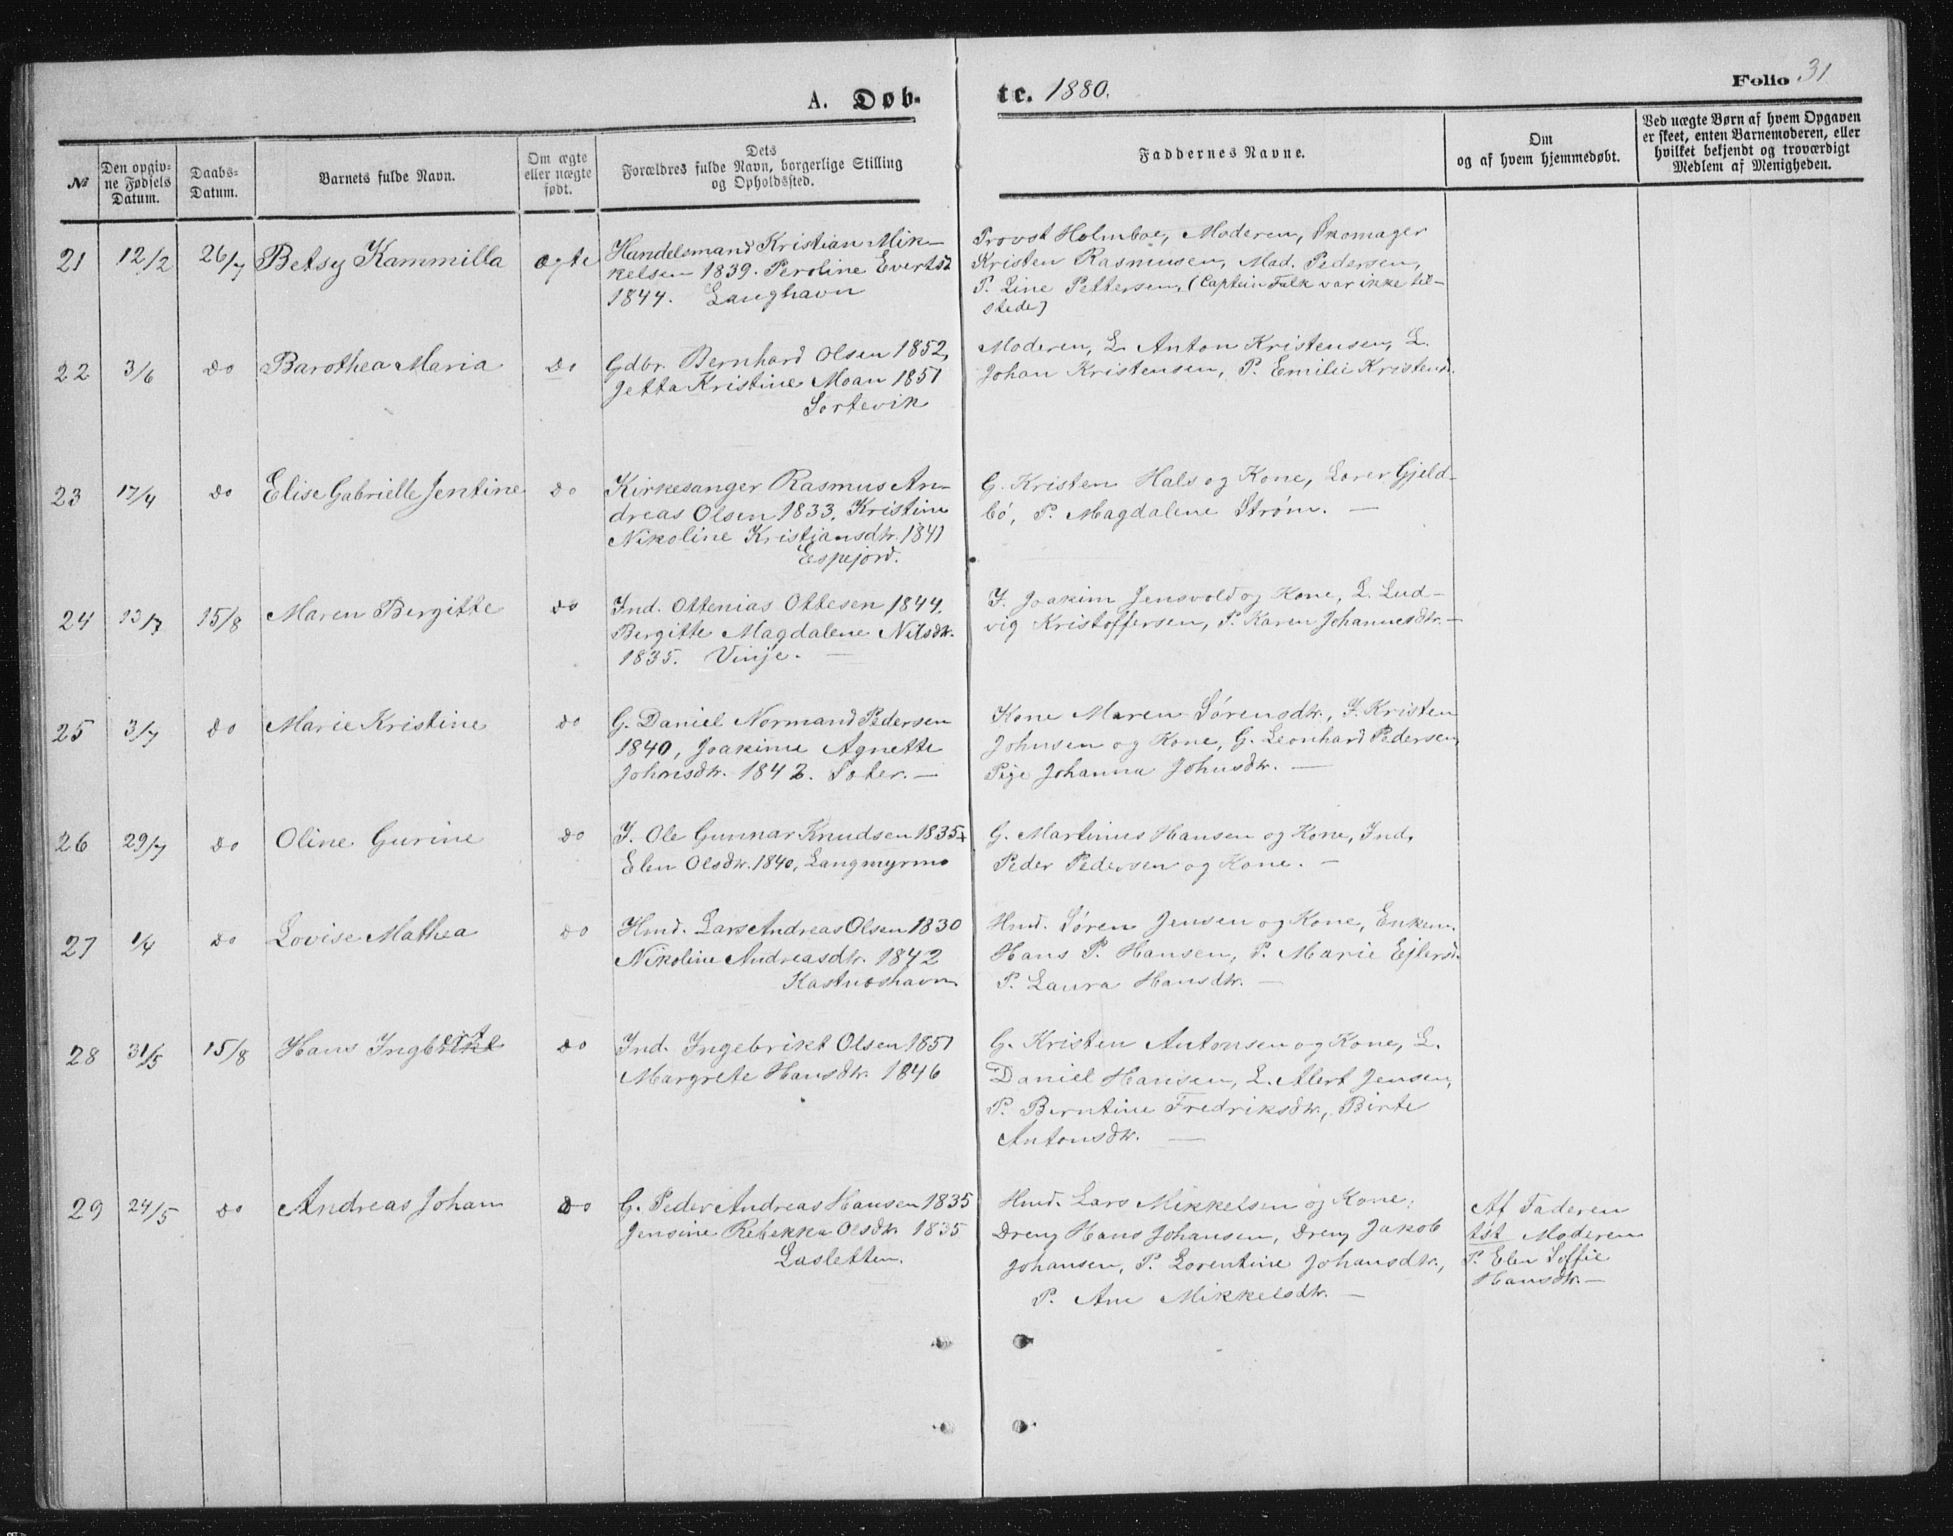 A. Døb-
te. 1880.
Folio 31
No
Den opgiv-
ne Fødsels
Datum.
Daabs-
Datum.
Barnets fulde Navn.
Om ægte
eller uægte
født.
Dets
Forældres fulde Navn, borgerlige Stilling
og Opholdssted.
Faddernes Navne.
Om
og af hvem hjemmedøbt.
Ved uægte Børn af hvem Opgaven
er skeet, enten Barnemoderen, eller
hvilket bekjendt og troværdigt
Medlem af Menigheden.
21 12/2 26/7 Betsy Kammilla ægte
Handelsmand Kristian Mik-
kelsen 1839. Peroline Evertsd
1844. Langhavn
Provst Holmboe, Moderen, Skomager
Kristen Rasmusen, Mad. Pedersen,
P. Line Pettersen, (Captein Falk var ikke til-
stede)
22 3/6 do Barothea Maria do
Gdbr. Bernhard Olsen 1852,
Jetta Kristine Moan 1851
Sortevik
Moderen, L. Anton Kristensen, L.
Johan Kristensen, P. Emilie Kristensd.
23 17/4 do Elise Gabrielle Jentine do
Kirkesanger Rasmus An-
dreas Olsen 1833, Kristine
Nikoline Kristiansdtr. 1841
Espejord.
G. Kristen Hals og Kone, Lærer Gjeld-
bö, P. Magdalene Strøm. —
24 13/7 15/8 Maren Bergitte do
Ind. Ottenias Ottesen 1844.
Bergitte Magdalene Nilsdtr.
1835. Vinje. —
I. Joakim Jensvold og Kone, L. Lud-
vig Kristoffersen, P. Karen Johannesdtr. —
25 3/7 do Marie Kristine do
G. Daniel Normand Pedersen
1840, Joakime Agnette
Johnsdtr. 1842. Soter. —
Kone Maren Sörensdtr., I. Kristen
Johnsen og Kone, G. Leonhard Pedersen,
Pige Johanna Johnsdtr. —
26 29/7 do Oline Gurine do
I. Ole Gunnar Knudsen 1835 +
Elen Olsdtr. 1840, Langmyrmo
G. Martinus Hansen og Kone, Ind.
Peder Pedersen og Kone. —
27 1/4 do Lovise Mathea do
Hmd. Lars Andreas Olsen 1830
Nikoline Andreasdtr. 1842
Kastnæshavn
Hmd. Søren Jensen og Kone, Enkem.
Hans P. Hansen, P. Marie Ejlersd.
P. Laura Hansdtr. —
28 31/5 15/8 Hans Ingebrikt do
Ind. Ingebrikt Olsen 1851
Margrete Hansdtr. 1846
G. Kristen Antonsen og Kone, L.
Daniel Hansen, L. Alert Jensen,
P. Berntine Fredriksdtr., Birte
Antonsdtr. —
29 24/5 do Andreas Johan do
G. Peder Andreas Hansen 1835
Jensine Rebekka Olsdtr. 1835
Lasletten.
Hmd. Lars Mikkelsen og Kone,
Dreng Hans Johansen, Dreng Jakob
Johansen, P. Lorentine Johansdtr.,
P. Ane Mikkelsdtr. —
Af Faderen
tst Moderen
P. Elen Soffie
Hansdtr. —